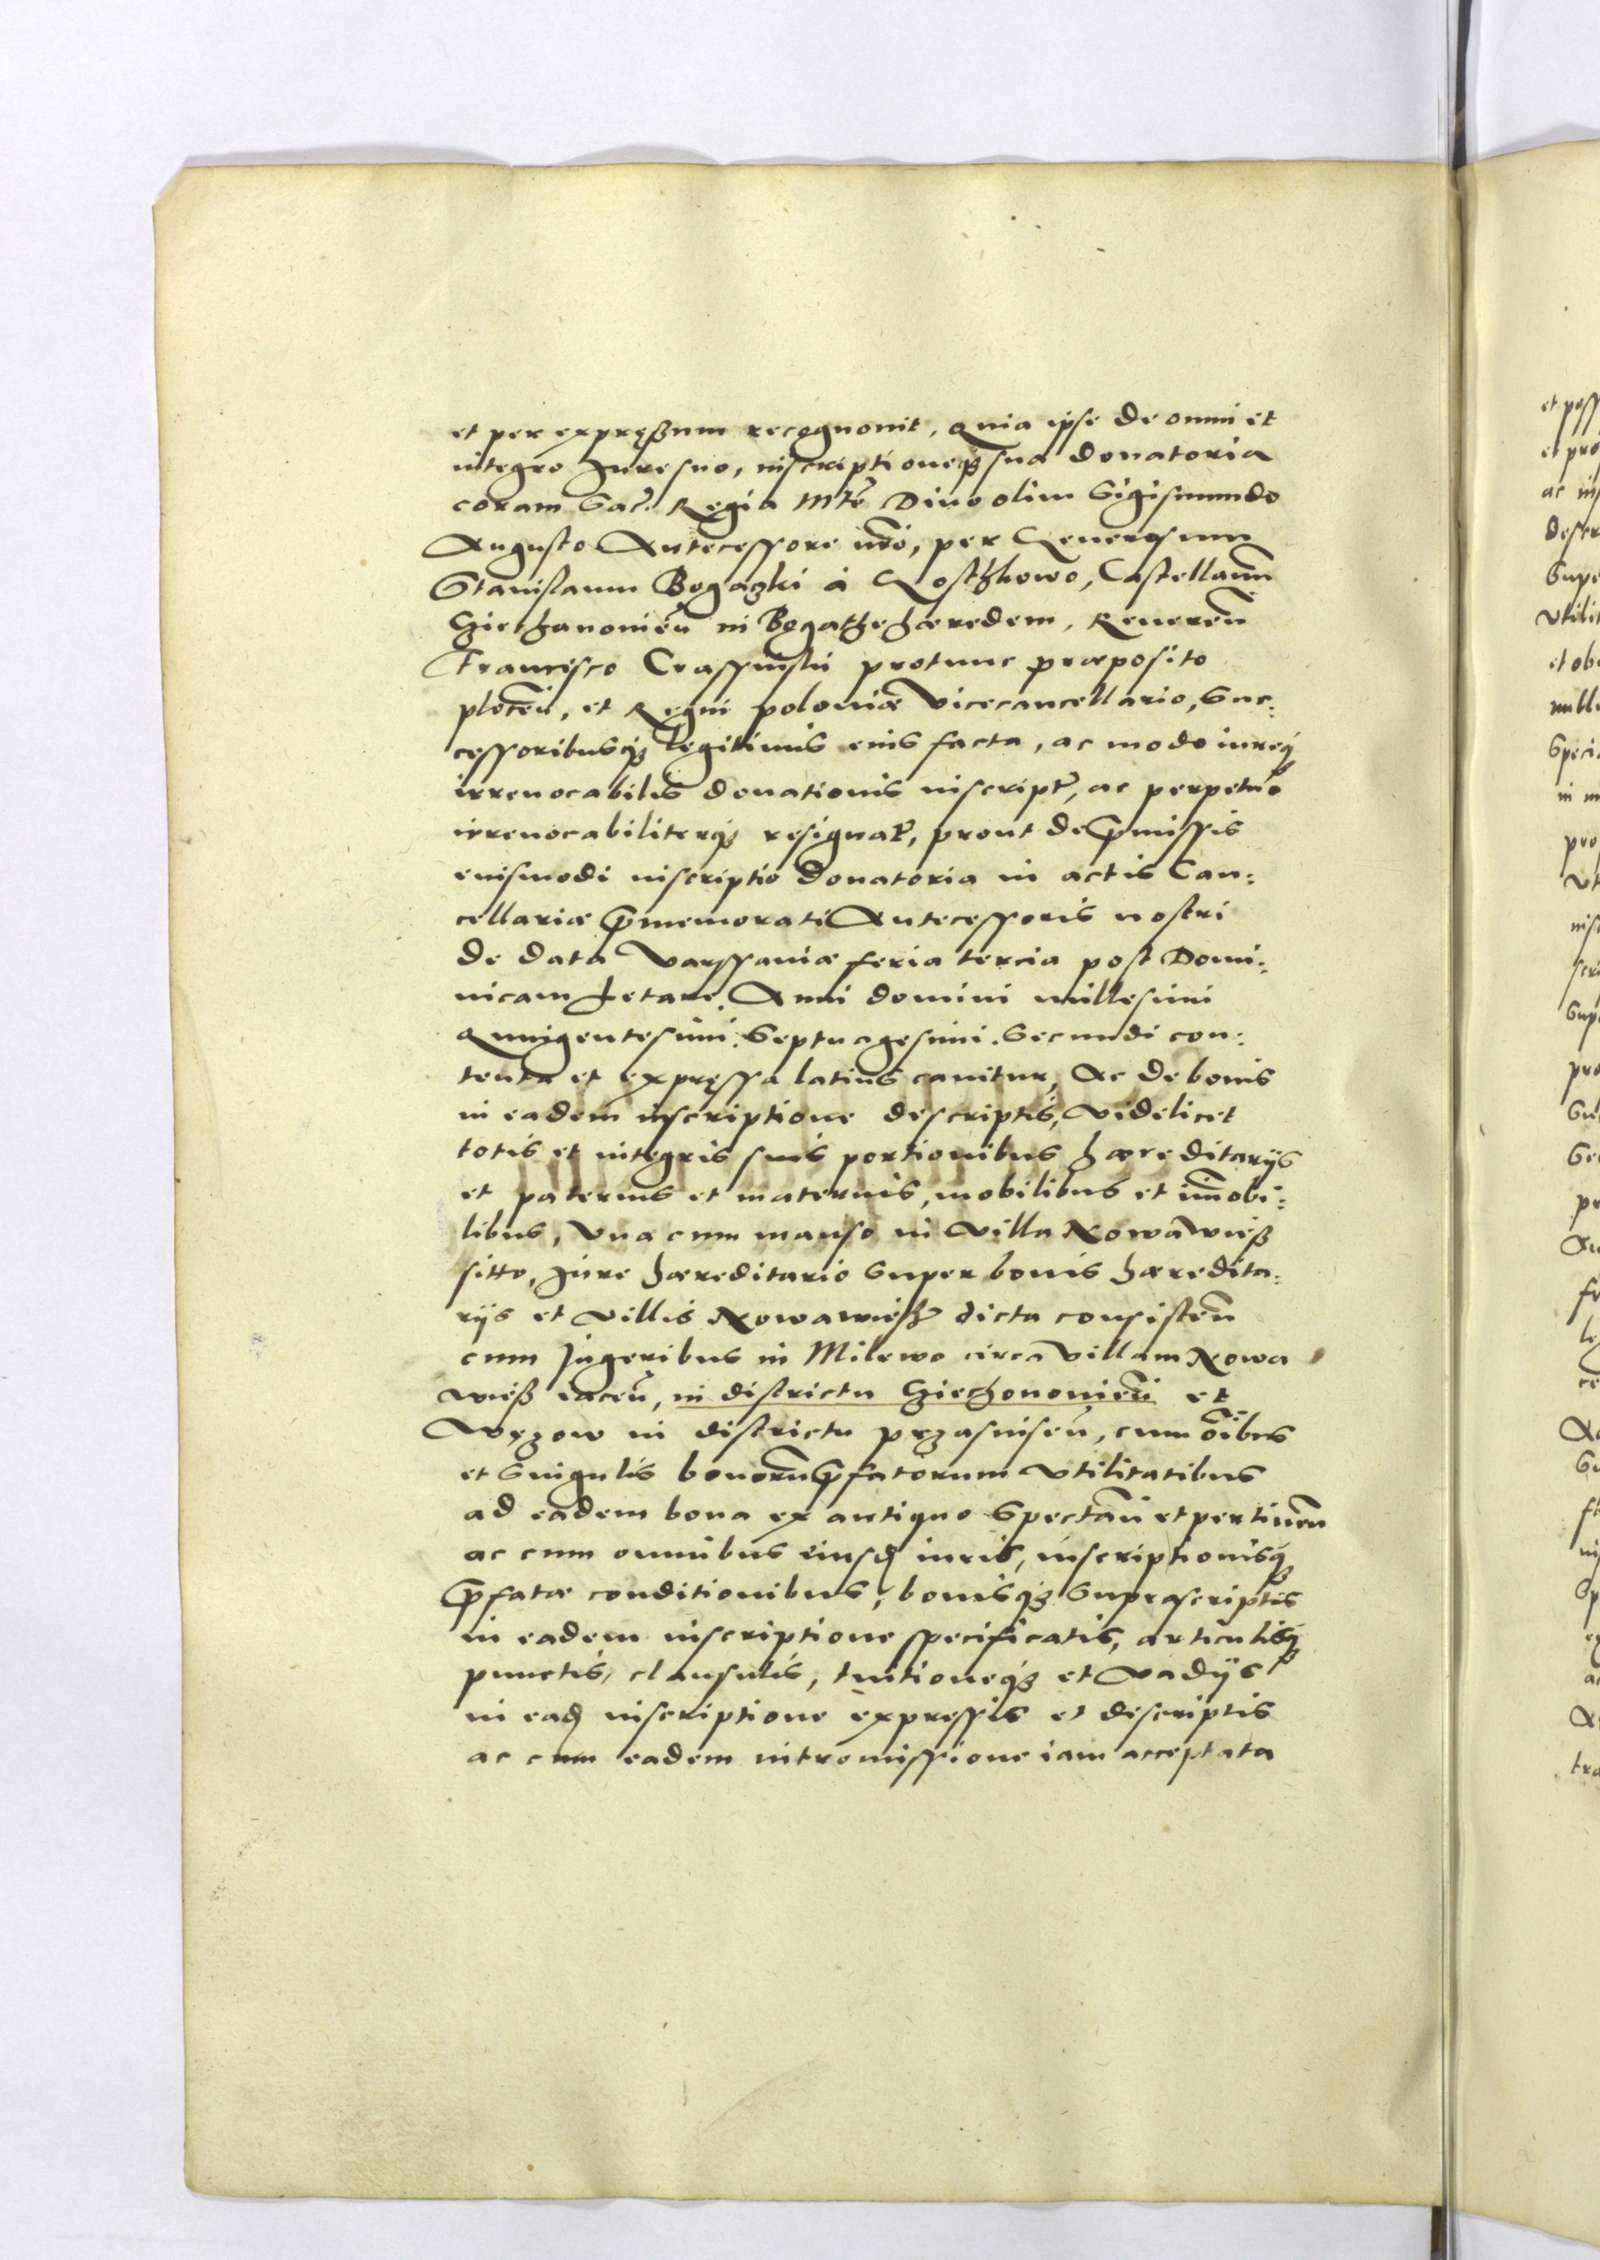 et per expręßum recognouit, quia ipse de omni et
integro Jure suo, inscriptioneq3 sua donatoria
coram Sac. Regia Mte Diuo olim Sigismundo
Augusto Antecessore nro, per Generosum
Stanislaum Bogaczki à Gostzkowo, Castellanu
Cziechanouien in Bogathe hæredem, Reueren
Francisco Crassinski protunc præposito
plocen, et Regni poloniæ Vicecancellario, Suc:
cessoribusq3 legitimis eius facta, ac modo iureq3
irreuocabilis donationis inscript, ac perpetuo
irreuocabiliterq3 resignat, prout de pmissis
eiusmodi inscriptio donatoria in actis Can:
cellariæ pmemorati Antecessoris nostri
de data Varssauiæ feria tercia post Domi:
nicam Letare. Anni domini millesimi
Quingentesimi. Septuagesimi. Secundi con:
tenta et expręssa latius canitur, Ac de bonis
in eadem inscriptione descriptis, Videlicet
totis et integris suis portionibus hæreditarijs
et paternis et maternis, mobilibus et imobi:
libus, Vna cum manso in Villa Nowawieß
sitto, Jure hæreditario Super bonis hæredita:
rijs et Villis Nowawieß dicta consisten
cum Jugeribus in Milewo circa Villam Nowa
wieß iacen, in districtu Cziechonouien et
Węzow in districtu przasnisen, cum oibus
et Singulis bonoru pfatorum Vtilitatibus
ad eadem bona ex antiquo Spectan et pertinen
ac cum omnibus eiusd iuris, inscriptionisq3
pfatæ conditionibus, bonisq3 Suprascriptis
in eadem inscriptione specificatis, articulisq3
punctis, clausulis, tuitioneq3 et Vadijs
in ead inscriptione expressis et discriptis
ac cum eadem intromissione iam acceptata